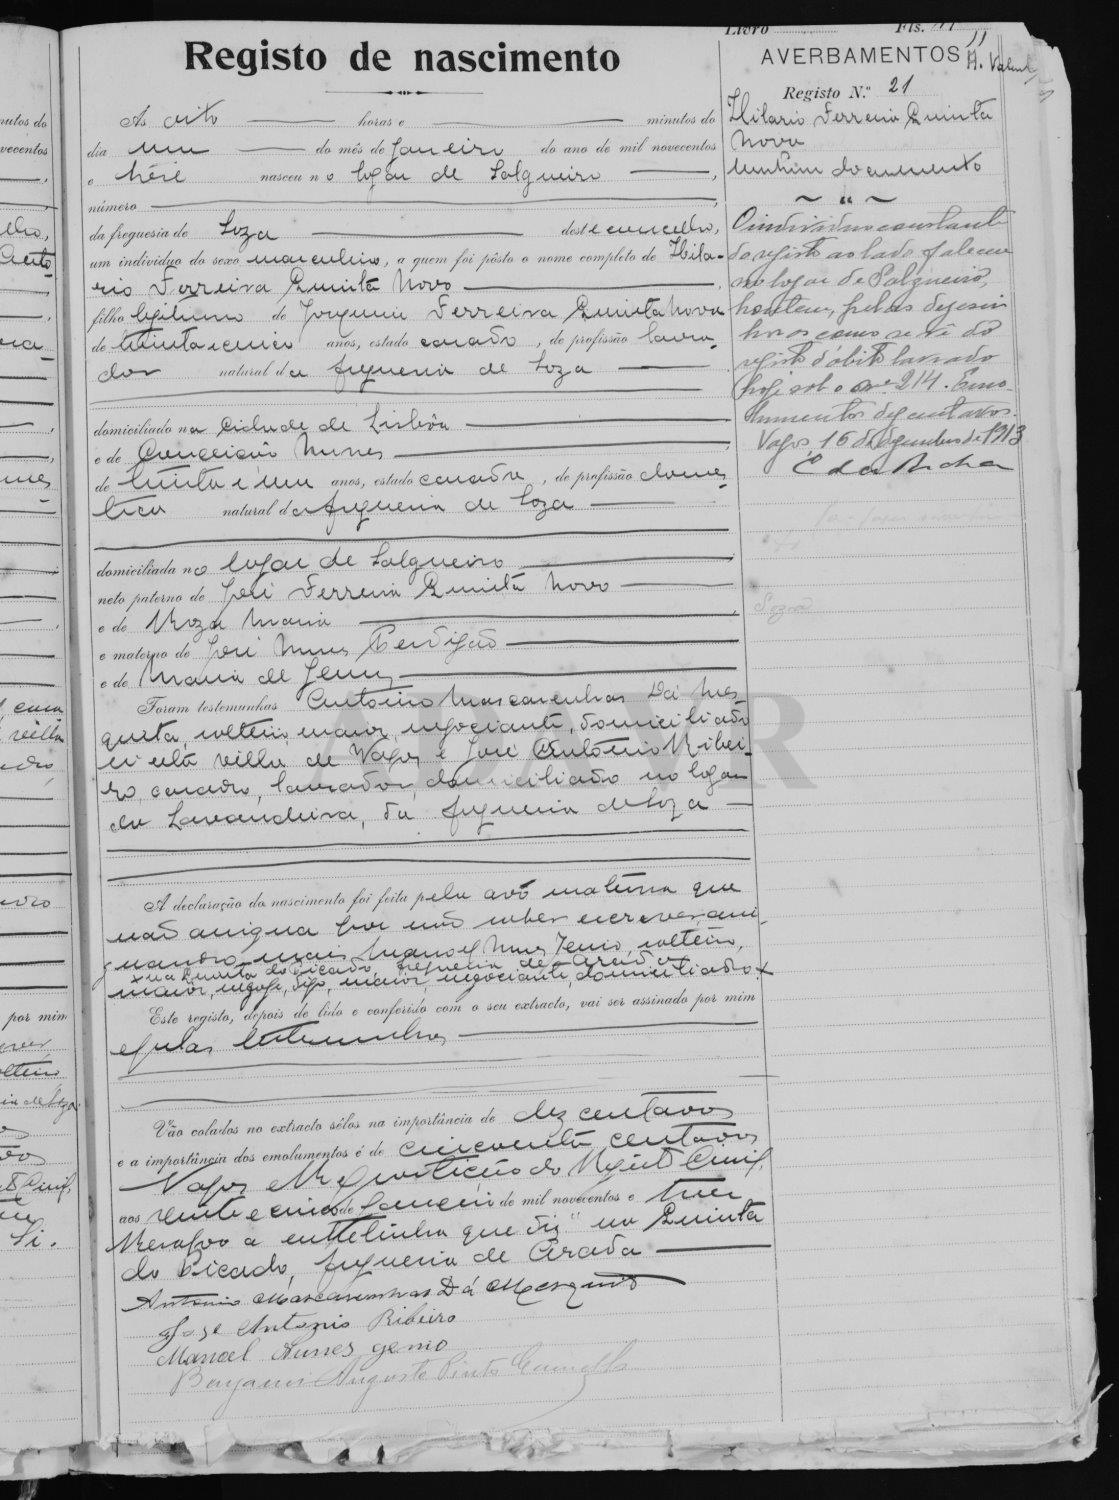 Livro Fls. 11
Registo de nascimento
AVERBAMENTOS
Registo N.º 21
Hilario Ferreira Quinta
Novo
Nenhum documento
~ " ~
O individuo constante
do registo ao lado faleceu
no logar de Salgueiro,
hontem, pelas
horas como se vê do
registo d'obito lavrado
hoje sob o nº 214. Emo-
lumentos dez centavos.
Vagos, 16 de Dezembro de 1913
As oito horas e minutos do
dia um do mês de Janeiro do ano de mil novecentos
e nasceu no logar de Salgueiro,
número
da freguesia de Soza deste concelho,
um indivíduo do sexo masculino, a quem foi pôsto o nome completo de Hila-
rio Ferreira Quinta Novo
filho legitimo de Joaquim Ferreira Quinta Novo
de trinta e cinco anos, estado casado, de profissão lavra-
dor natural da freguesia de Soza
domiciliado na cidade de Lisbôa
e de Conceição Nunes
de trinta e um anos, estado casada, de profissão domes-
tica natural da freguesia de Soza
domiciliada no logar de Salgueiro
neto paterno de José Ferreira Quinta Novo
e de Roza Maria
e materno de José Nunes Perdigão
e de Maria de Jesus
Foram testemunhas Antonio Mascarenhas Da Mes-
quita, solteiro, maior, negociante, domiciliado
n'esta villa de Vagos e José Antonio Ribei-
ro, casado, lavrador, domiciliado no logar
da Lavandeira, da freguesia de Soza
A declaração do nascimento foi feita pela avó materna que
não assigna por não saber escrever,
mais Manoel Nunes Genio, solteiro,
x na Quinta do Picado, freguesia de Arada
maior, digo, maior, negociante, domiciliado x
Este registo, depois de lido e conferido com o seu extracto, vai ser assinado por mim
e pelas testemunhas
Vão colados no extracto sêlos na importância de dez centavos
e a importância dos emolumentos é de cincoenta centavos
Vagos e Repartição do Registo Civil,
aos vinte e cinco de Janeiro de mil novecentos e treze
Resalvo a entrelinha que diz "na Quinta
do Picado, freguesia de Arada
Antonio Mascarenhas Dá Mesquita
José Antonio Ribeiro
Manoel Nunes genio
Augusto Pinto
ADAVR